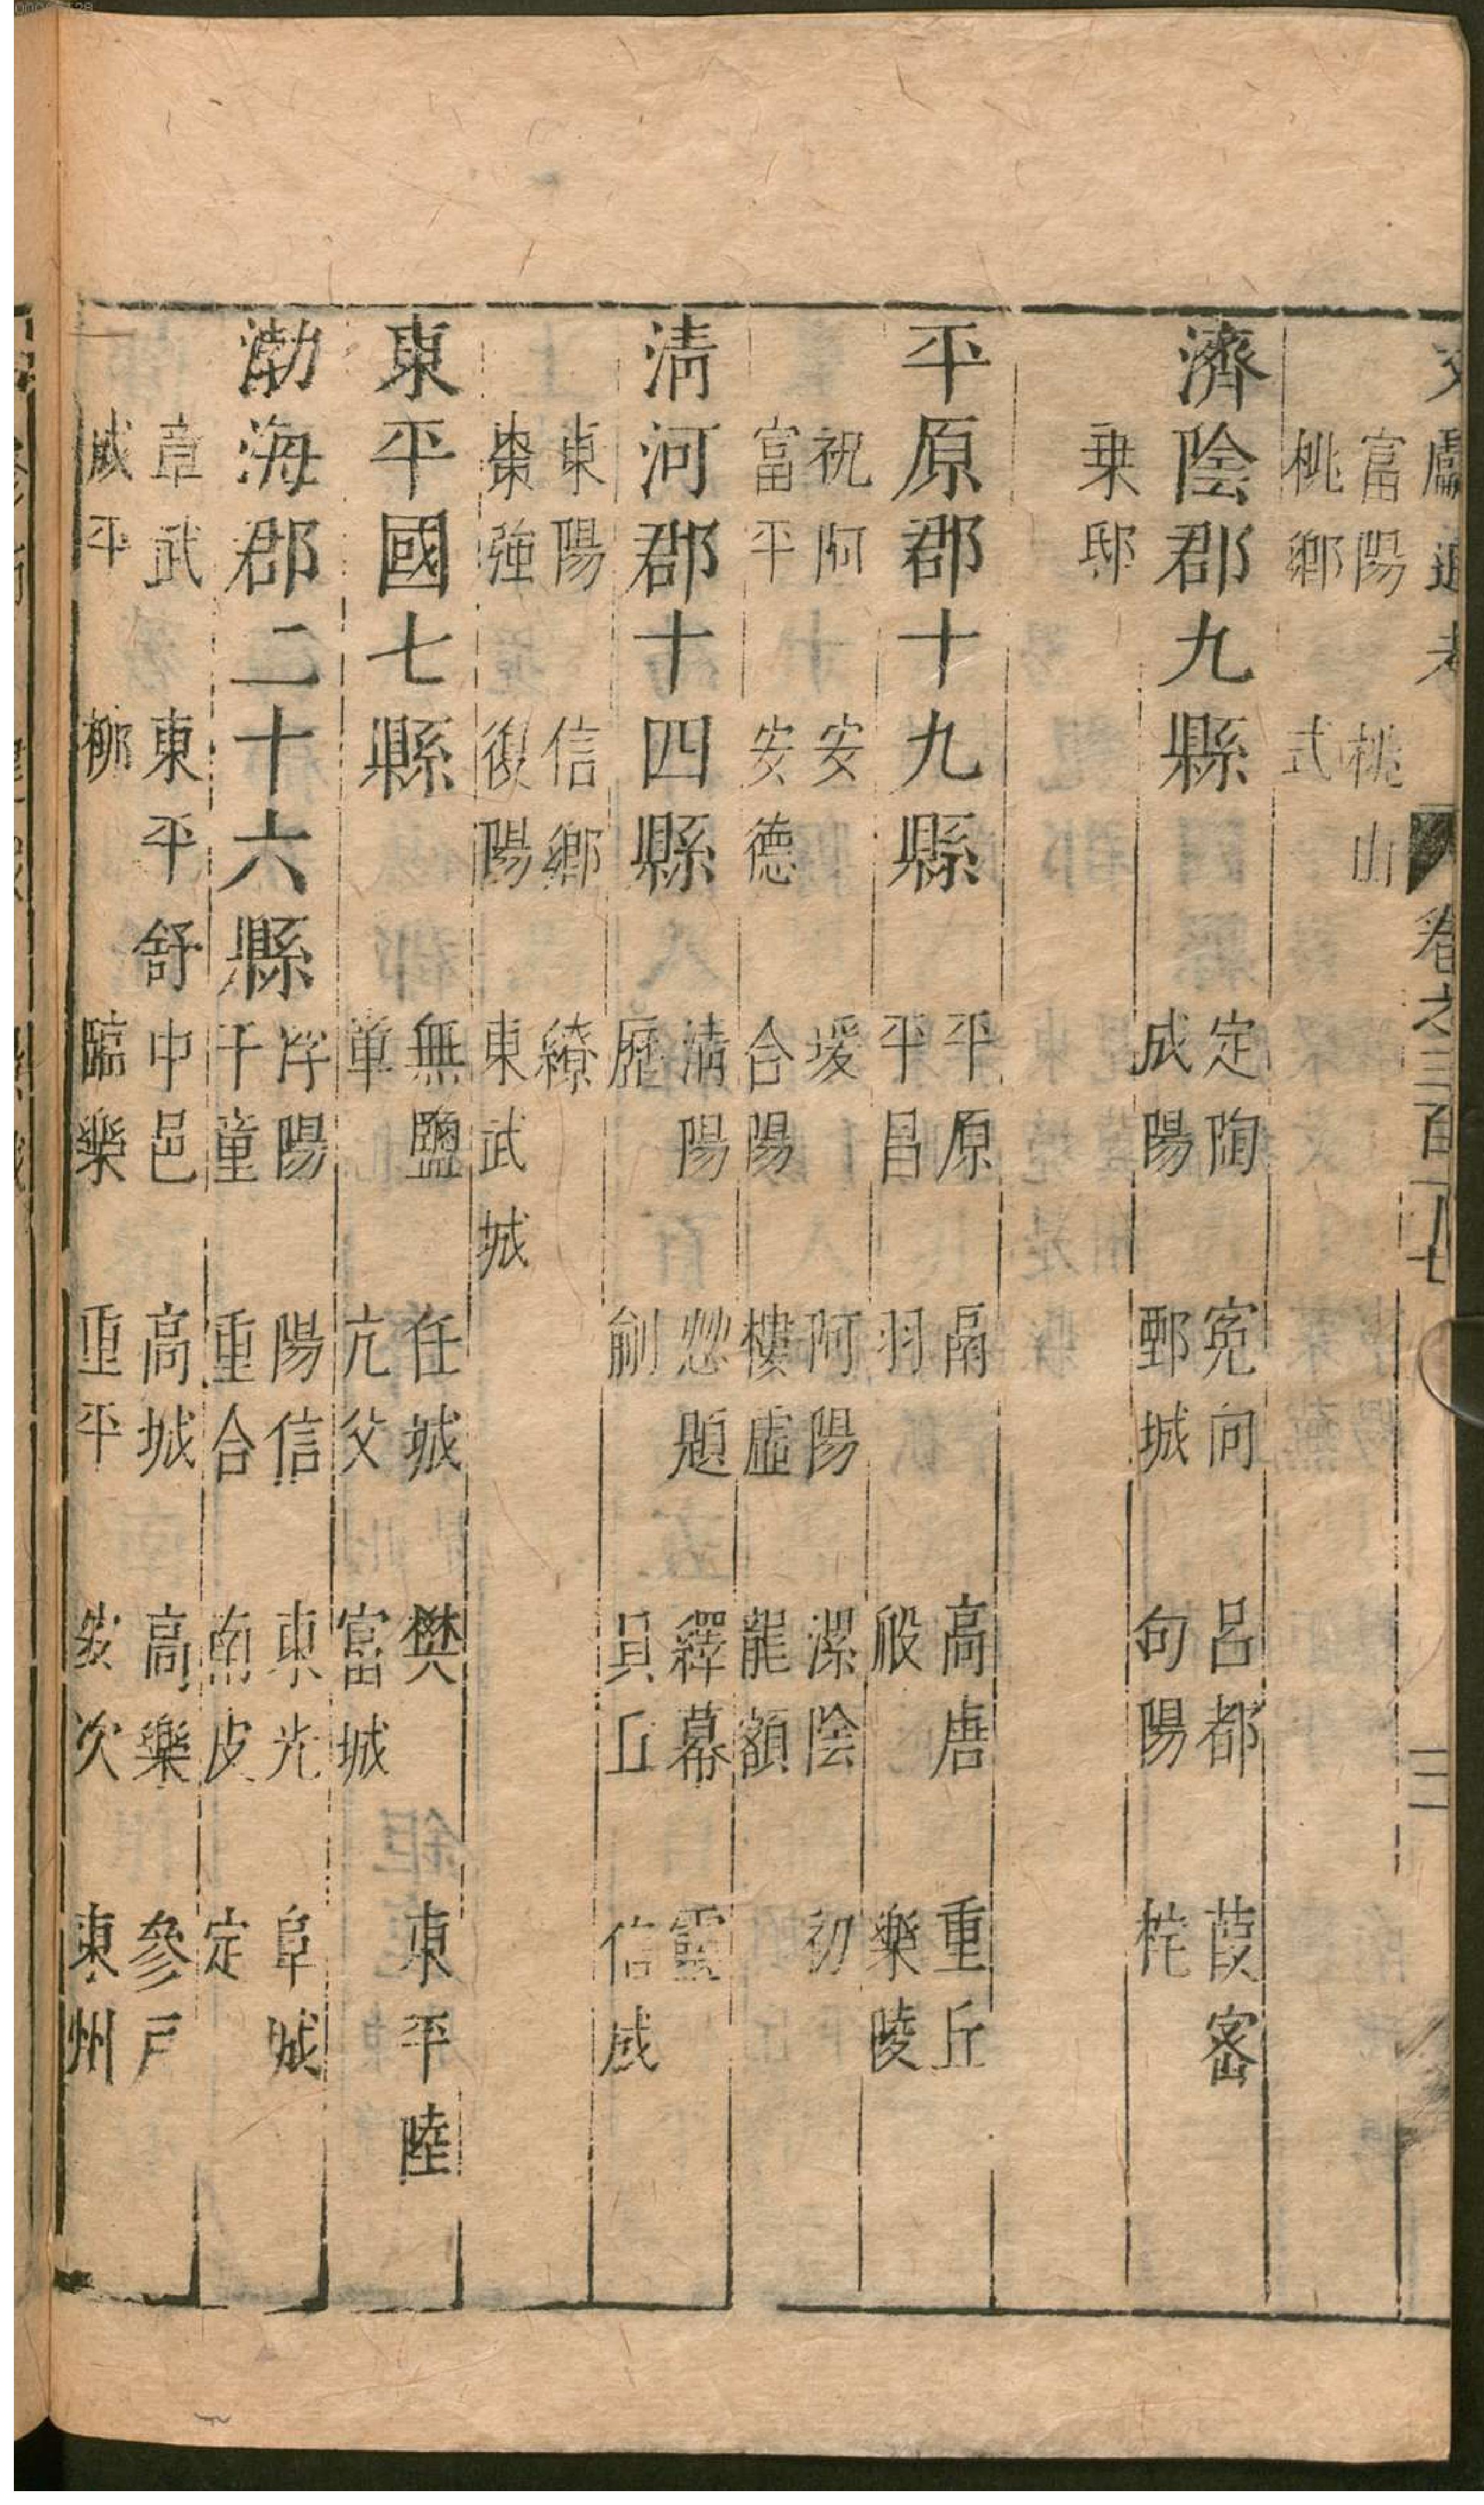 文獻通考 卷之三百十七 三
富陽 桃山
桃鄉 式
濟陰郡九縣
定陶 寃句 呂都 葭密
成陽 鄄城 句陽 秺
乗邸
平原郡十九縣
平原 鬲 高唐 重丘
平昌 羽 般 樂陵
祝阿 安 瑗 阿陽 漯陰 朸
富平 安德 合陽 樓虛 龍頟
清河郡十四縣
清陽 愂題 繹幕 靈
厝 鄃 貝丘 信成
東陽 信鄉 繚
棗強 復陽 東武城
東平國七縣
無鹽 任城 樊 東平陸
章 亢父 富城
渤海郡二十六縣
浮陽 陽信 東光 阜城
千童 重合 南皮 定
章武 東平舒 中邑 高城 高樂 參戶
成平 柳 臨樂 重平 安次 東州